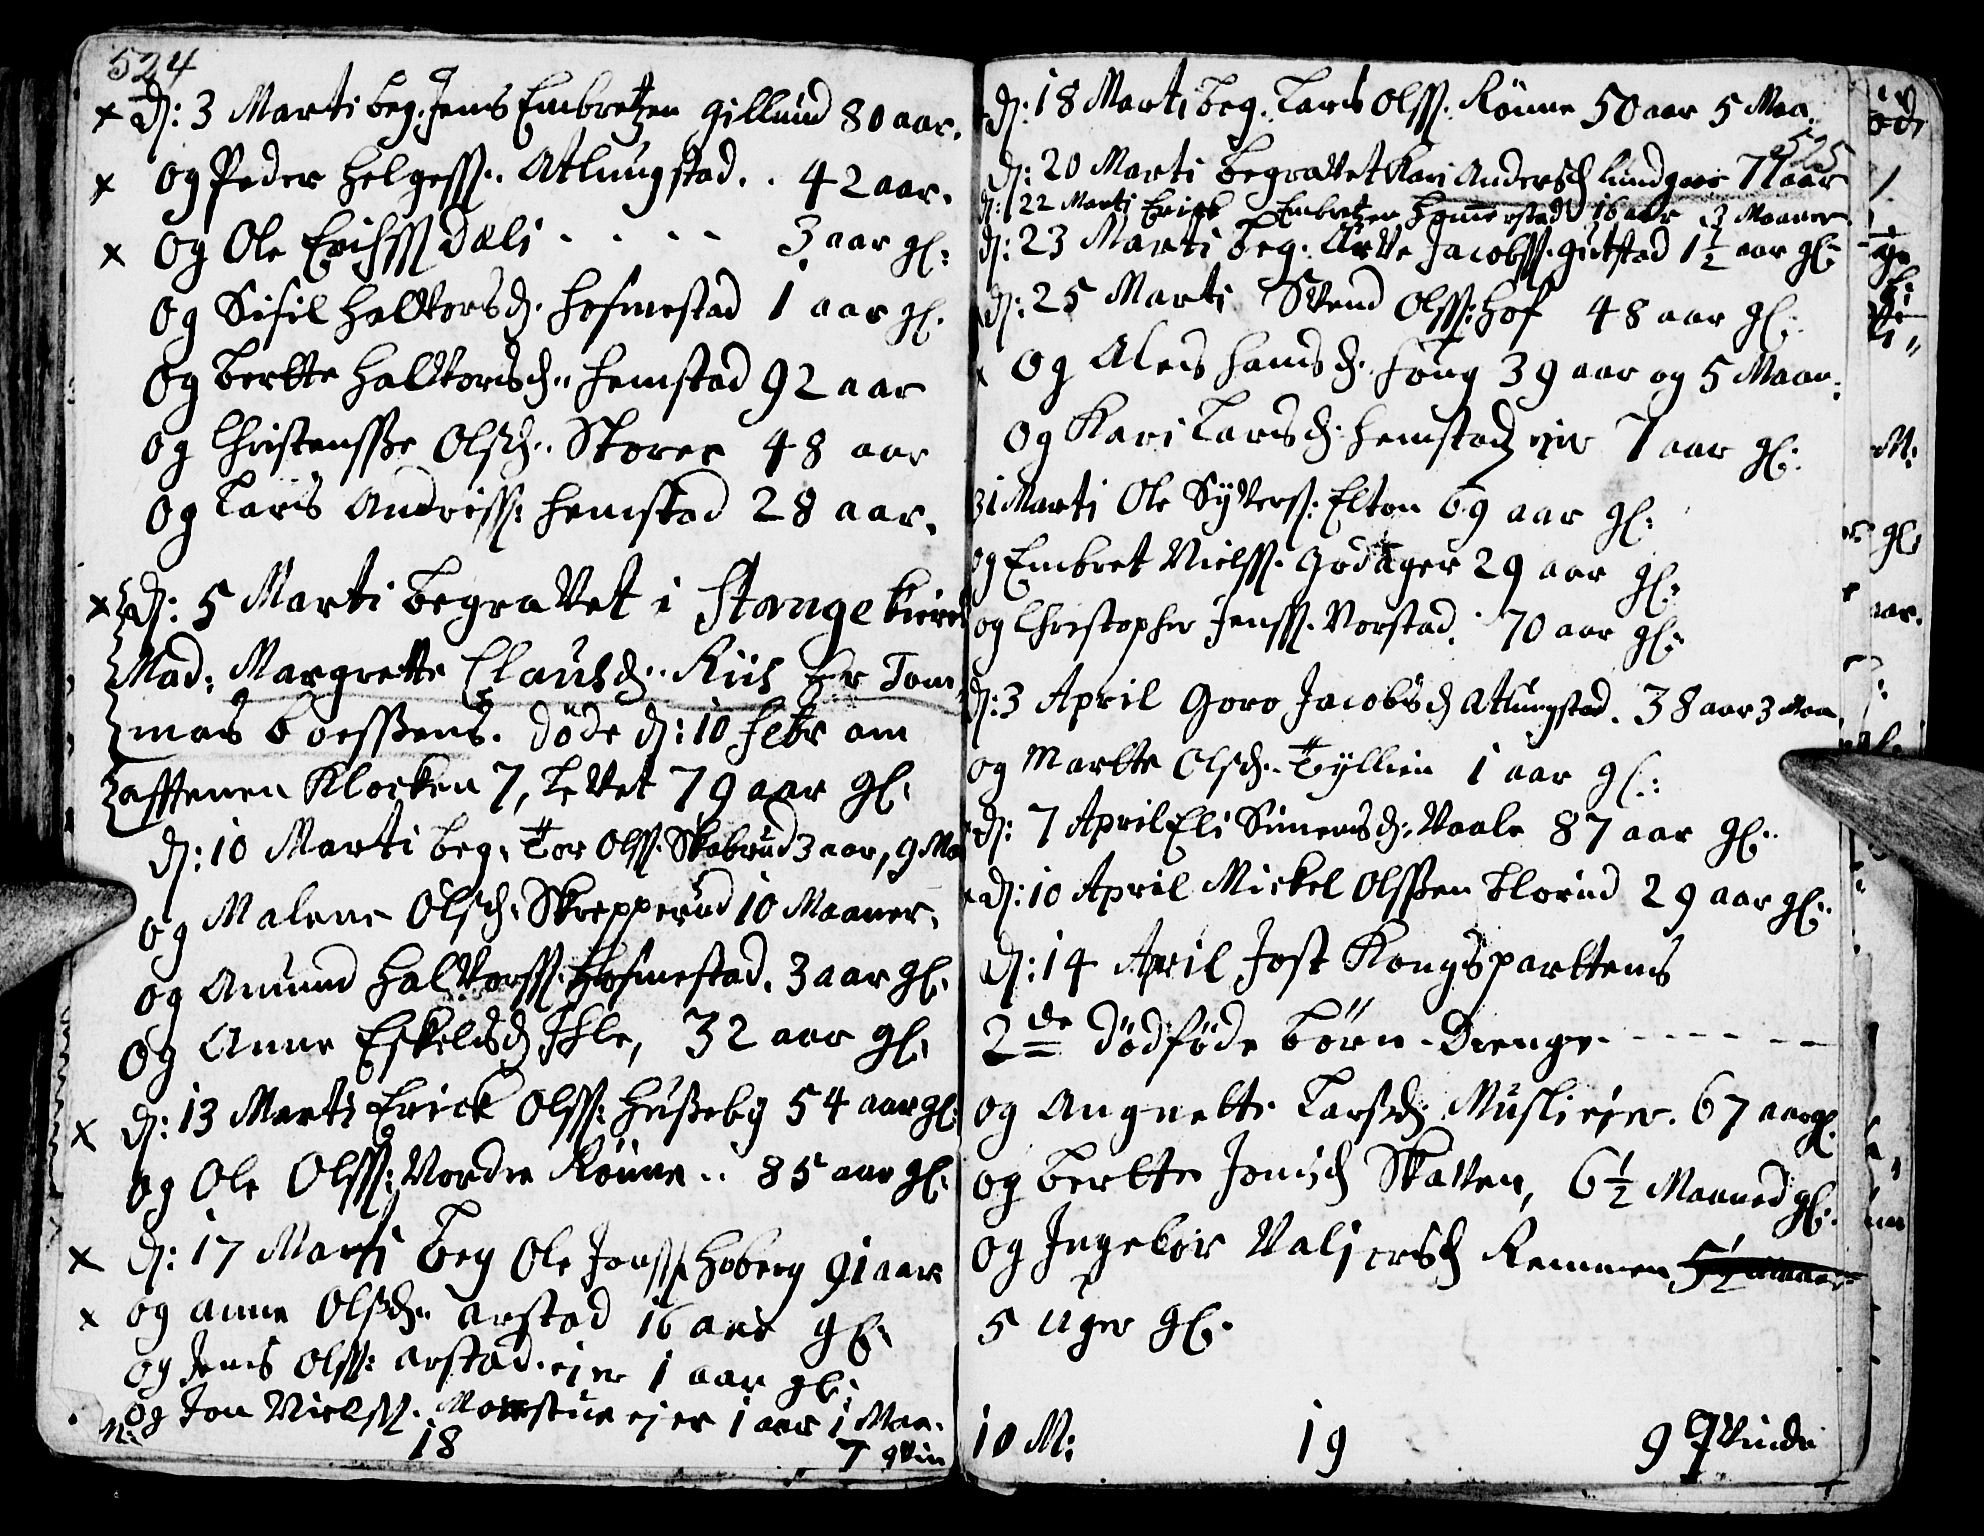 524
× d: 3 Marti beg. Jens Embretzen gillund 80 aar.
× og Peder Helgess: Atlungstad. . 42 aar.
× og Ole Erichss Dæli - - - - 3 aar gl:
og Sisil Halvorsd. Hosmestad 1 aar gl.
og Berte Halvorsd: Hemstad 92 aar
og Christensße Olsd: Skorer 48 aar
og Lars Andriss: Hemstad 28 aar.
× d: 5 Marti begravet i Stange kirch
Mad: Margrette Clausd: Riis Hr Tom
mas Boeßens. døde d: 10 Febr om
afftenen Klocken 7, levet 79 aar gl.
d: 10 Marti beg: Tor Olss. Skabrud 3 aar, 9 Ma
og Malene Olsd: Skrepperud 10 Maaner.
og Amund Halvorss. Hosmestad. 3 aar gl.
og Anne Eskelsd Ihle, 32 aar gl.
× d: 13 Marti Erick Olss: Hußeby 54 aar gl:
og Ole Olss: Nordre Rønne .. 85 aar gl.
× d: 17 Marti beg Ole Jonss Hoberg 91 aar
× og anne Olsd: arstad 16 aar gl.
og Jens Olss: arstad. ejer 1 aar gl:
og Jon Nielss. Morstue ejer 1 aar 1 Maa.
M: 18 7 qvin
d: 18 Marti beg. Lars Olss. Rønne 50 aar 5 Maa.
525
d: 20 Marti begravet Kari Andersd Lundgaar 71 aar
d: 22 Marti Erick Embretzen Hommerstad 16 aar 3 Maaner
d: 23 Marti beg: Arve Jacobss. gutstad 1½ aar gl:
d: 25 Marti Svend Olss: Hof 48 aar gl:
og Aleis Hansd. Houg 39 aar og 5 Maan.
og Kari Larsd. Hemstad ejer 7 aar gl:
31 Marti Ole Syvers: Elton 69 aar gl:
og Embret Nielss. Godager 29 aar gl:
og Christopher Jenss. Norstad. 70 aar gl:
d: 3 April Goro Jacobsd Atlungstad. 38 aar 3 Maa
og Marte Olsd. Tyllien 1 aar gl.:
d: 7 April Eli Simensd. Vaale 87 aar gl:
d: 10 April Mickel Olsßen Klorud 29 aar gl:
d: 14 April Jost Kongsparttens
2de dødføde børn - Drenge. - - - - - -
og Angnette Larsd Musli ejer. 67 aar gl.
og Berte Jonsd Skatten, 6½ Maaned gl.
og Ingebor Valjersd Remmen 5½ maaner
5 uger gl.
10 M: 19 9 Qvinde